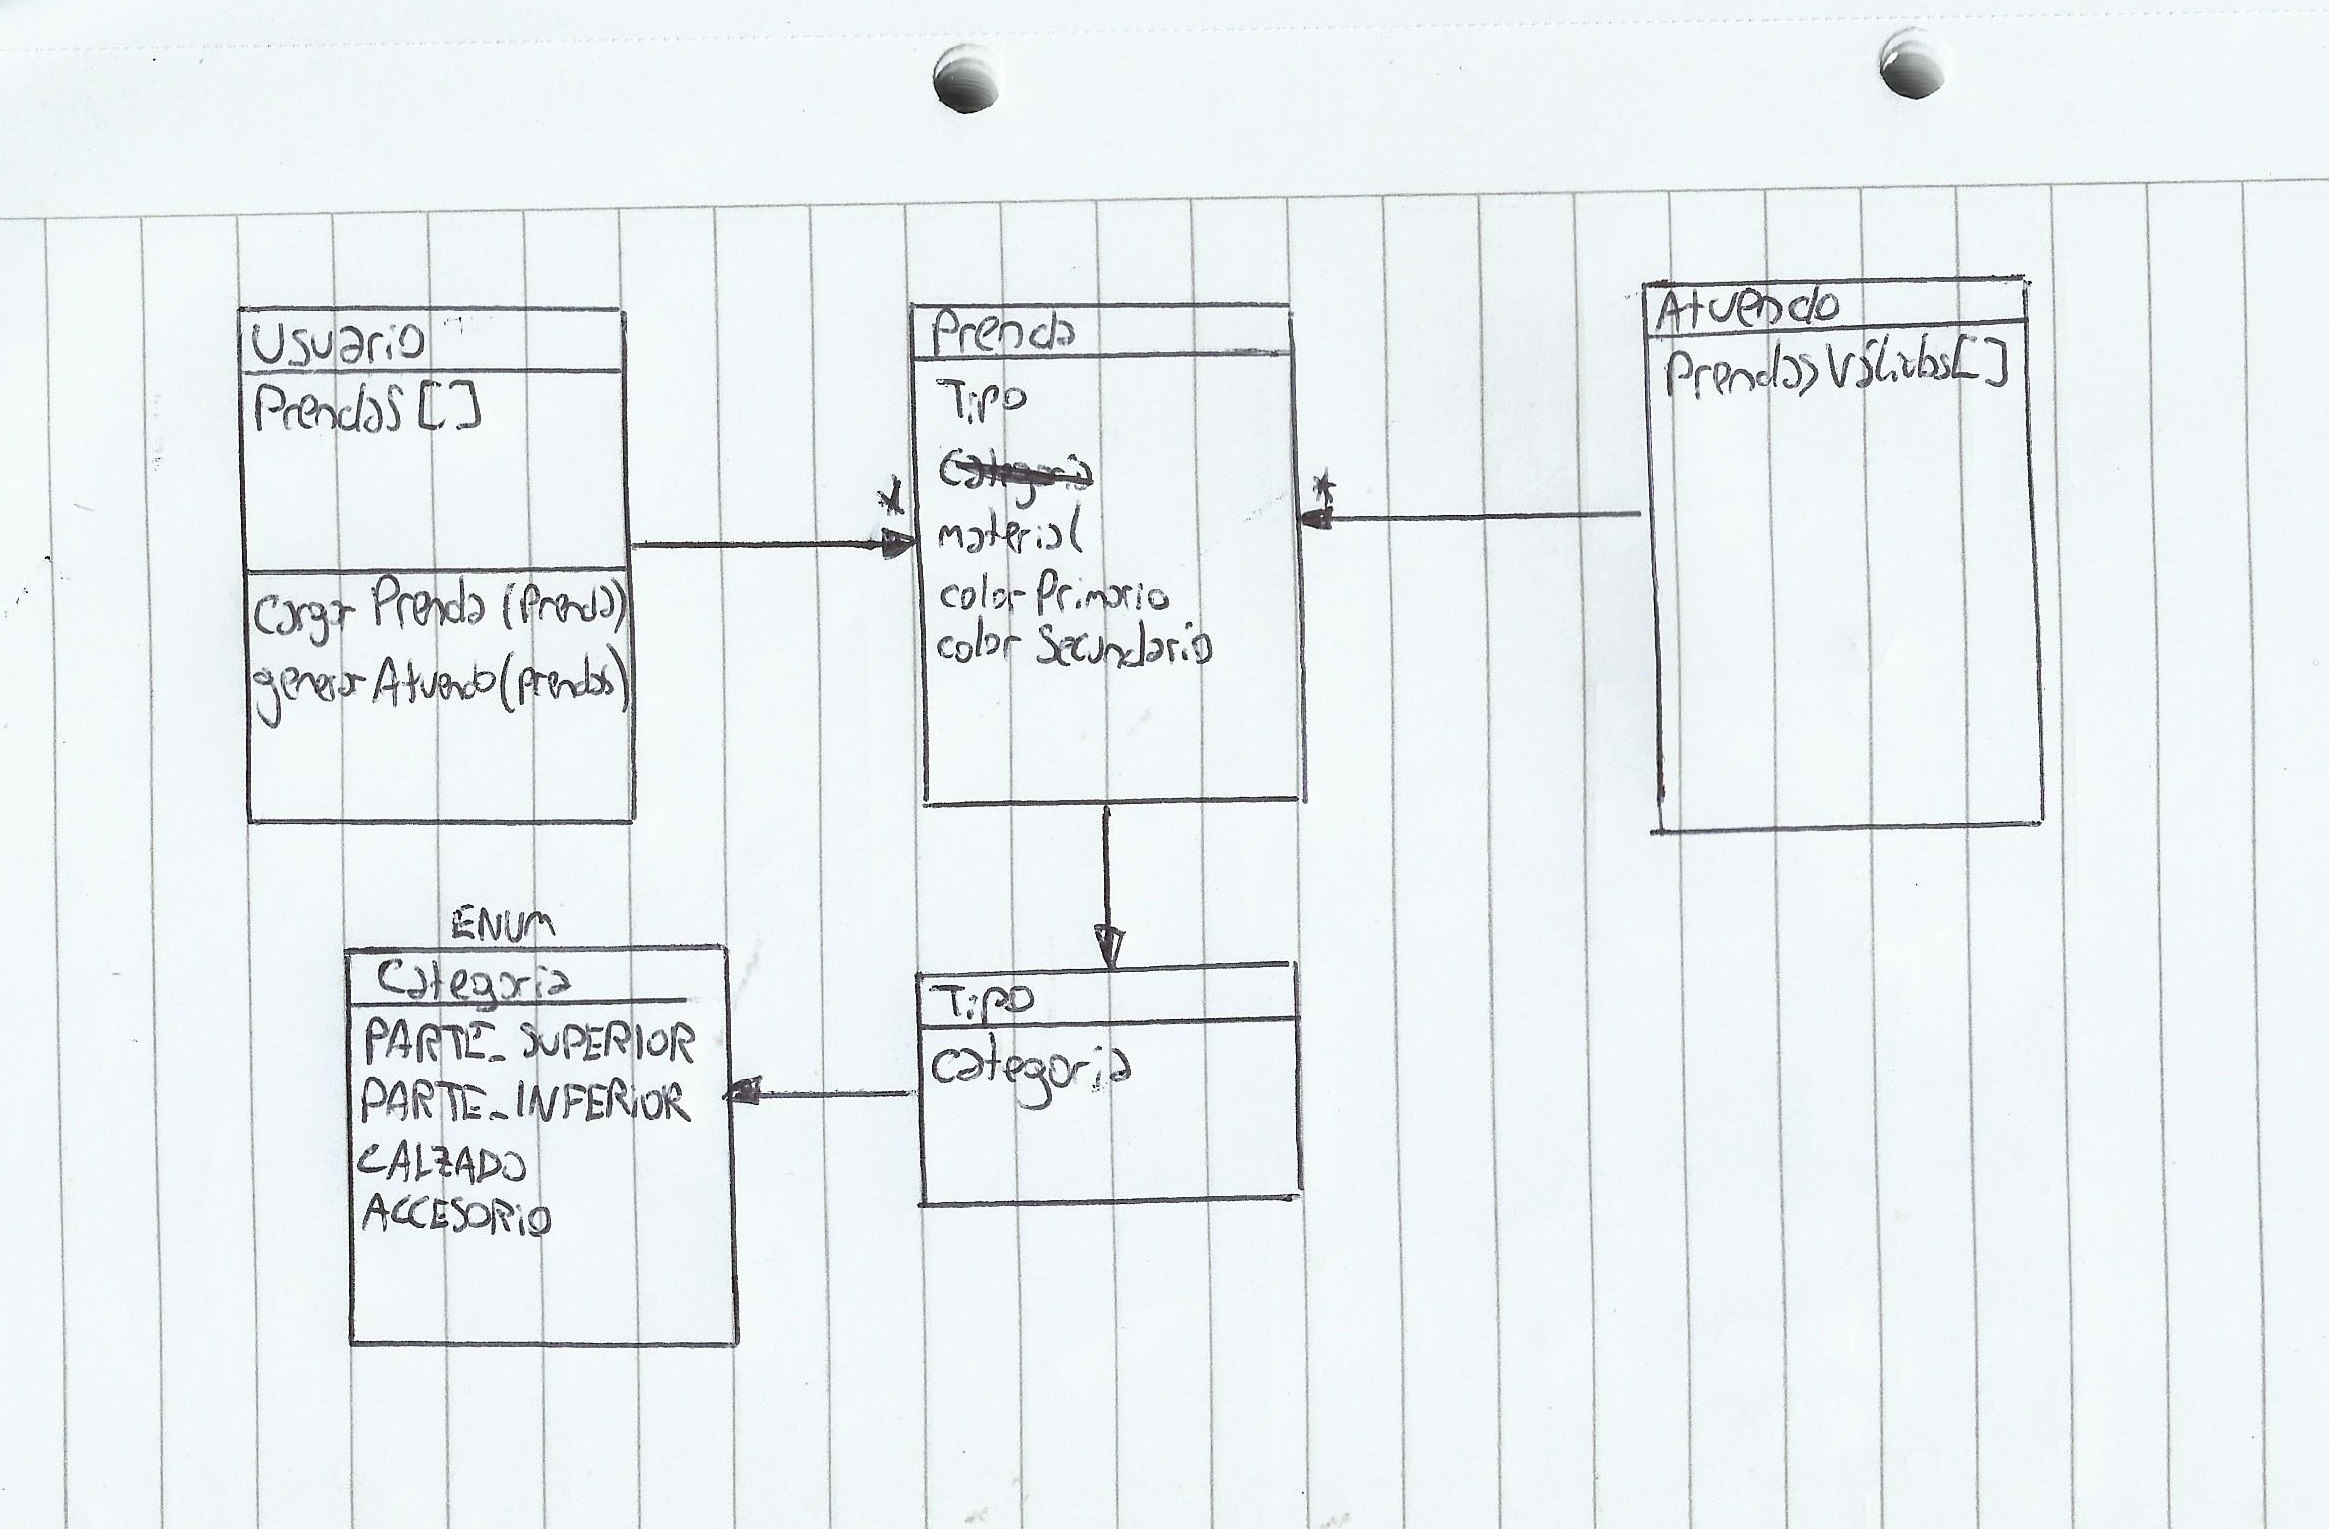 Usuario
Prendas []
cargar Prenda (Prenda)
generar Atuendo (prendas)
Prenda
Tipo
Categoria
material
color Primario
color Secundario
*
*
Atuendo
Prendas Válidas []
ENUM
Categoria
PARTE_SUPERIOR
PARTE_INFERIOR
CALZADO
ACCESORIO
Tipo
categoria